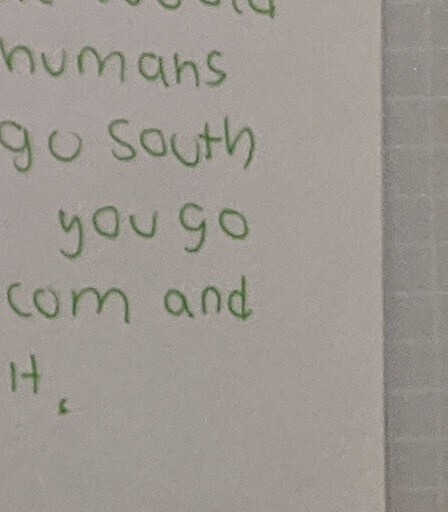 humans
go south
you go
com and
it.